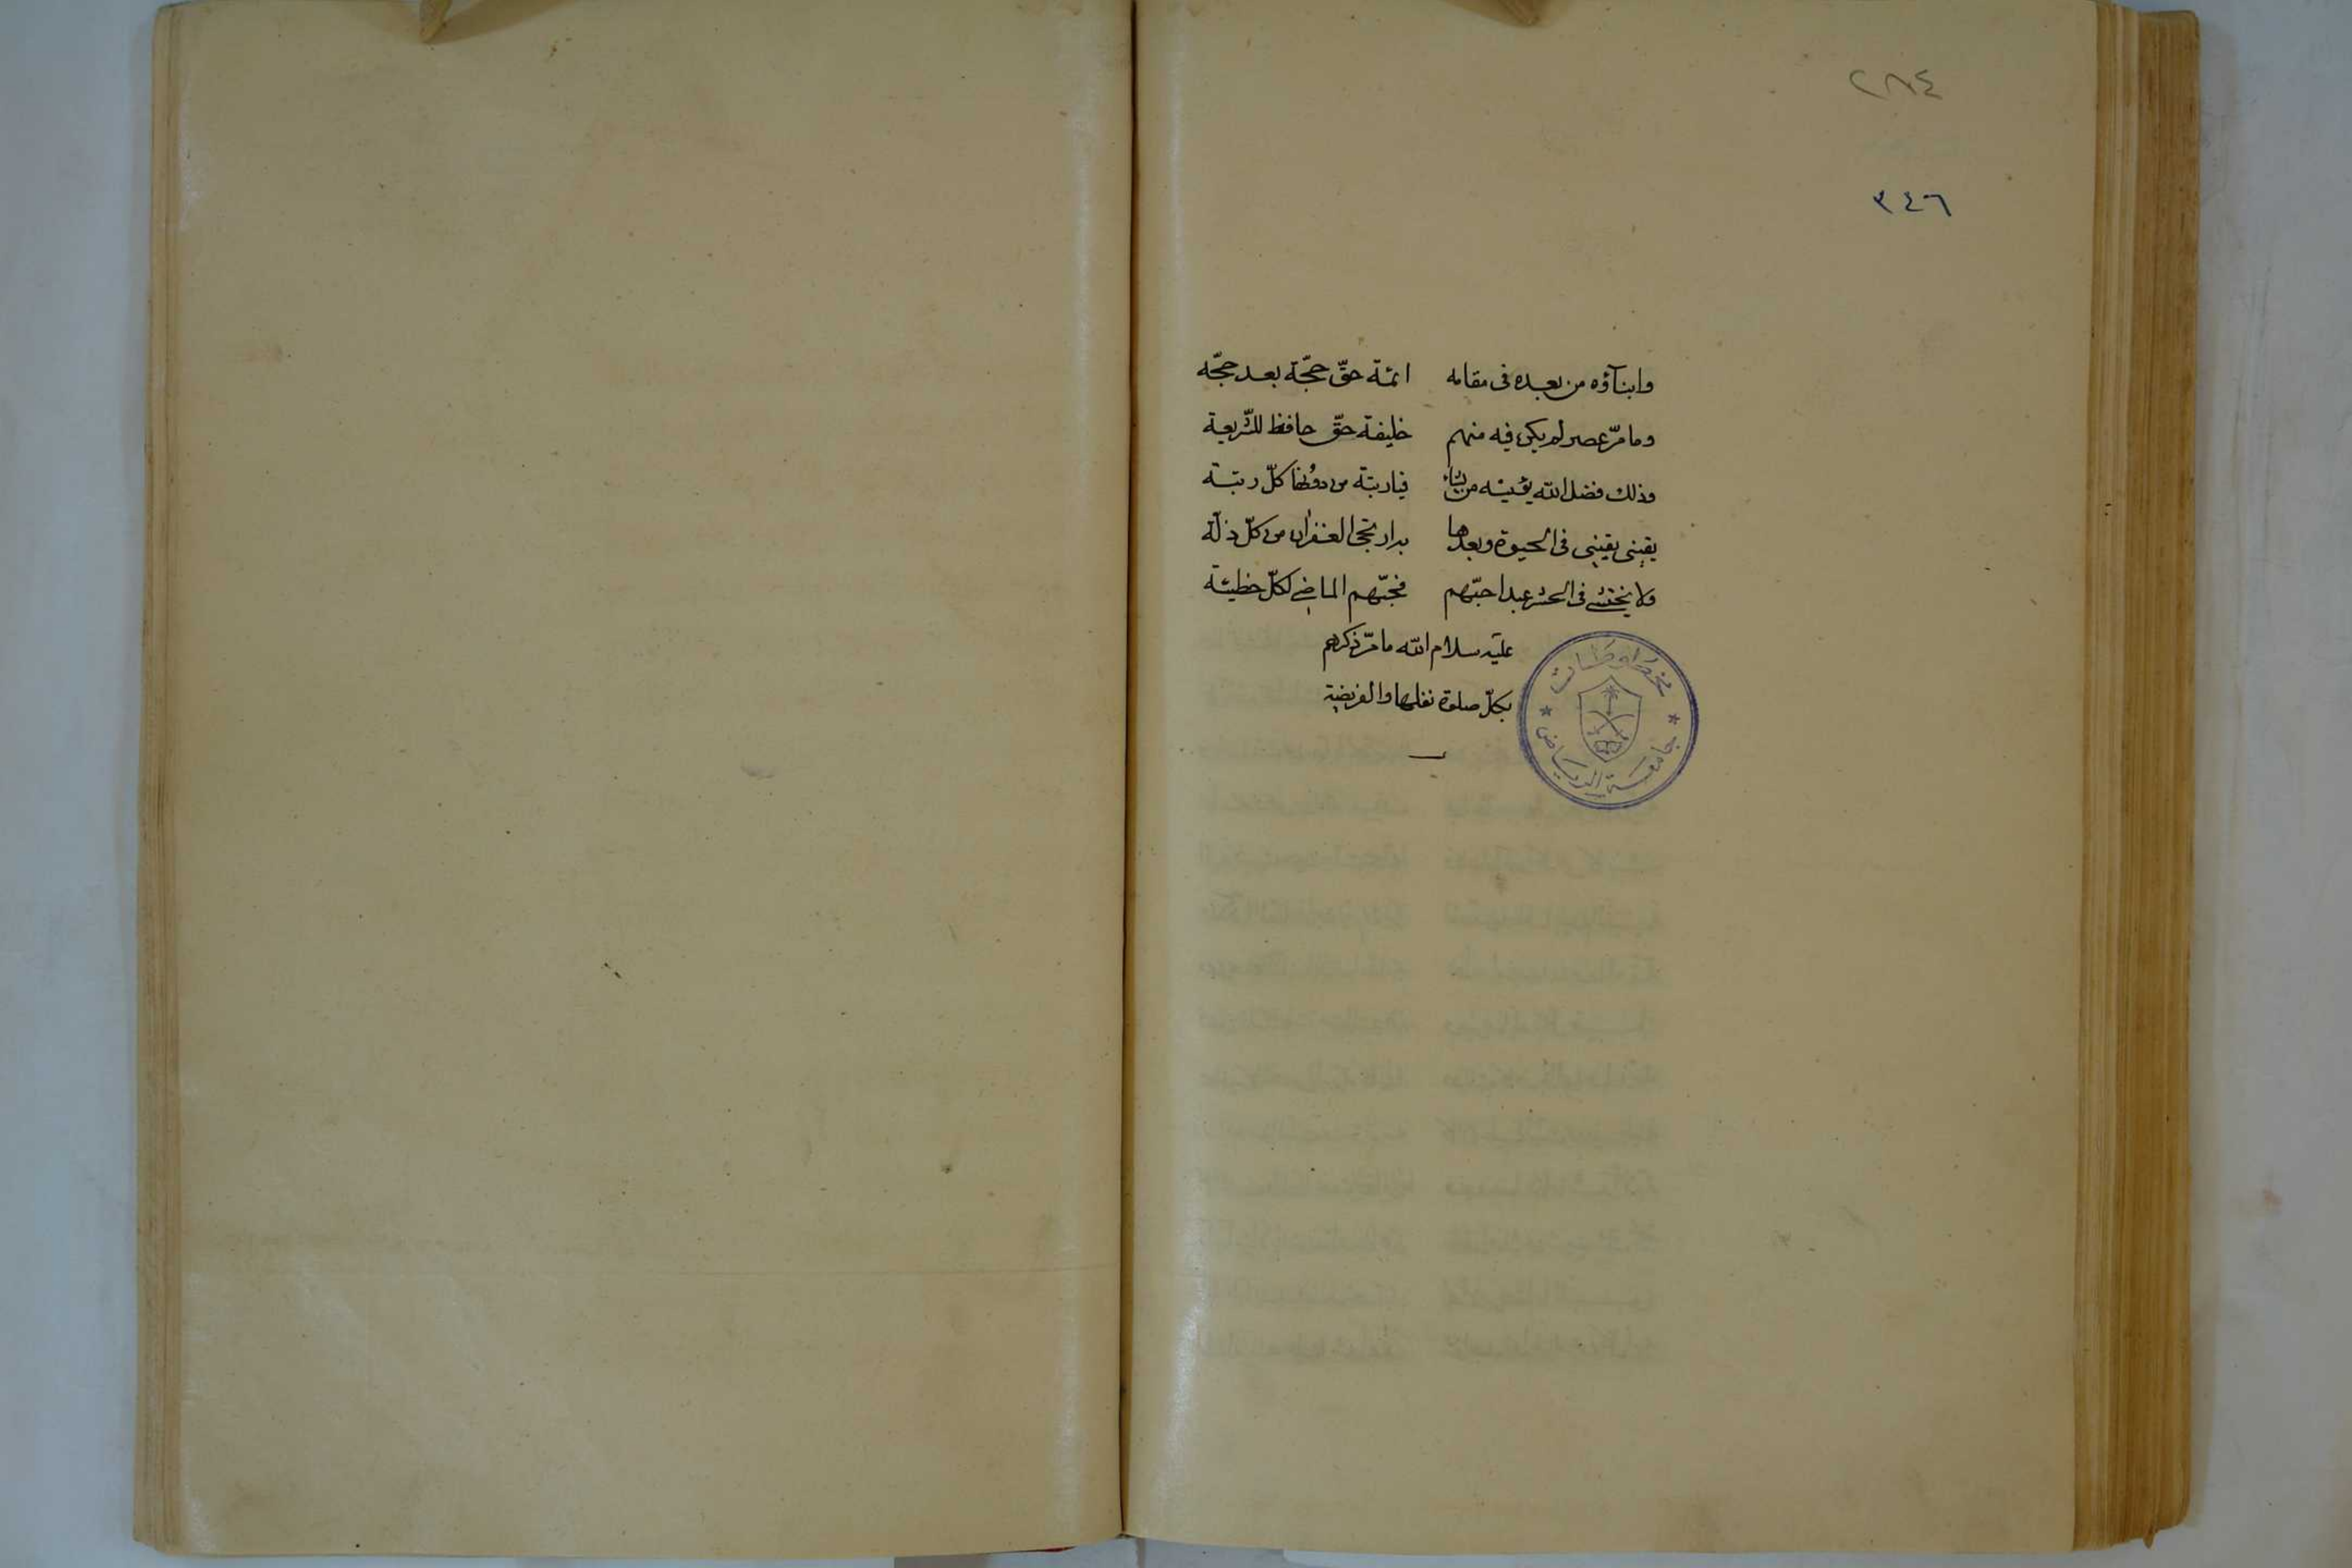 ٢٨٤
٣٤٦
وابنآؤه من بعده فى مقامه ائمّة حقّ حجّة بعد حجّه
وما مرّ عصر لم يكن فيه منهم خليفة حقّ حافظ للشّريعة
وذلك فضل الله يؤتيه من يشاء فيا رتبة من دونها كلّ رتبة
يقينى يقينى فى الحيوة وبعدها بدار الغفران من كلّ زلّة
ولا يختشى فى الحشر عبد احبّهم فحبّهم الماضى لكلّ خطيئة
عليه سلام الله ما مرّ ذكرهم
بكلّ صلوة نفلها والفريضة
مخطوطات
جامعة الرياض